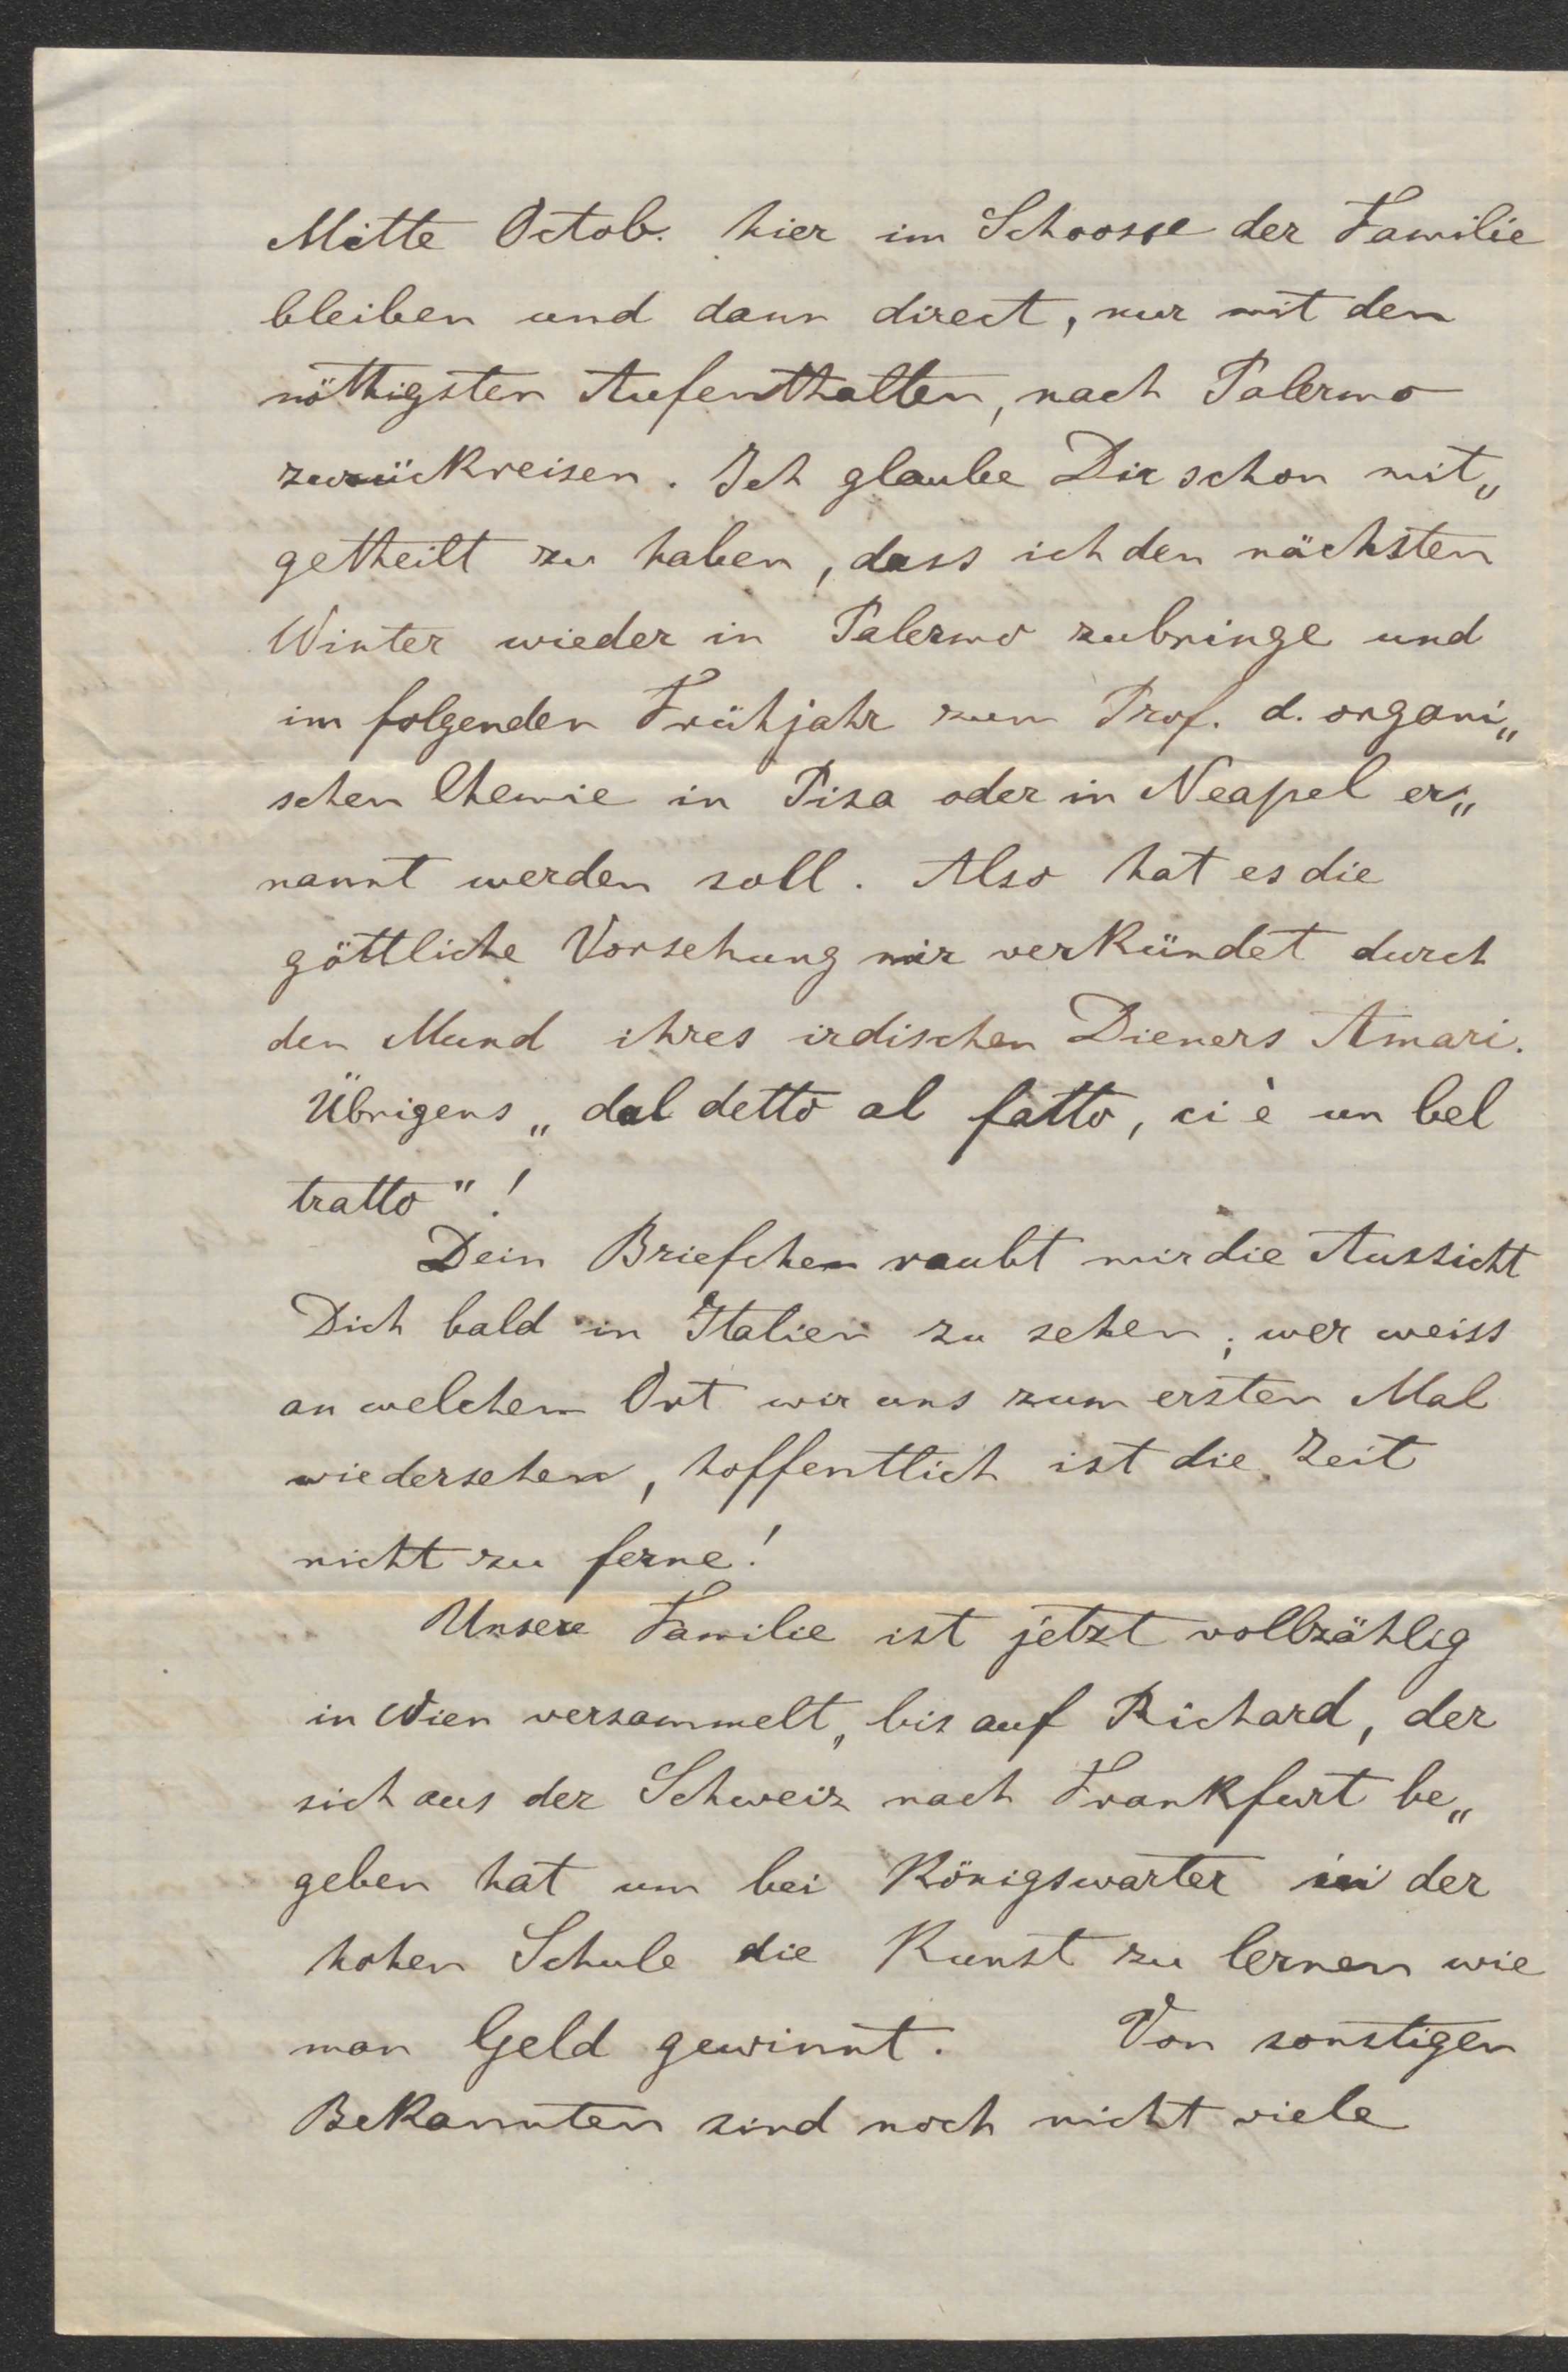 Mitte Octob. hier im Schoosse der Familie
bleiben und dann direct, nur mit den
nöthigsten Aufenthalten, nach Palermo
zurückreisen. Ich glaube Dir schon mit„
getheilt zu haben, dass ich den nächsten
Winter wieder in Palermo zubringe und
im folgenden Frühjahr zum Prof. d. organi„
schen Chemie in Pisa oder in Neapel er„
nannt werden soll. Also hat es die
göttliche Vorsehung mir verkündet durch
den Mund ihres irdischen Dieners Amari.
Übrigens „dal detto al fatto, ci è un bel
tratto"!
Dein Briefchen raubt mir die Aussicht
Dich bald in Italien zu sehen; wer weiss
an welchem Ort wir uns zum ersten Mal
wiedersehen, hoffentlich ist die Zeit
nicht zu ferne!
Unsere Familie ist jetzt vollzählig
in Wien versammelt, bis auf Richard, der
sich aus der Schweiz nach Frankfurt be„
geben hat um bei Königswarter in der
hohen Schule die Kunst zu lernen wie
man Geld gewinnt. Von sonstigen
Bekannten sind noch nicht viele